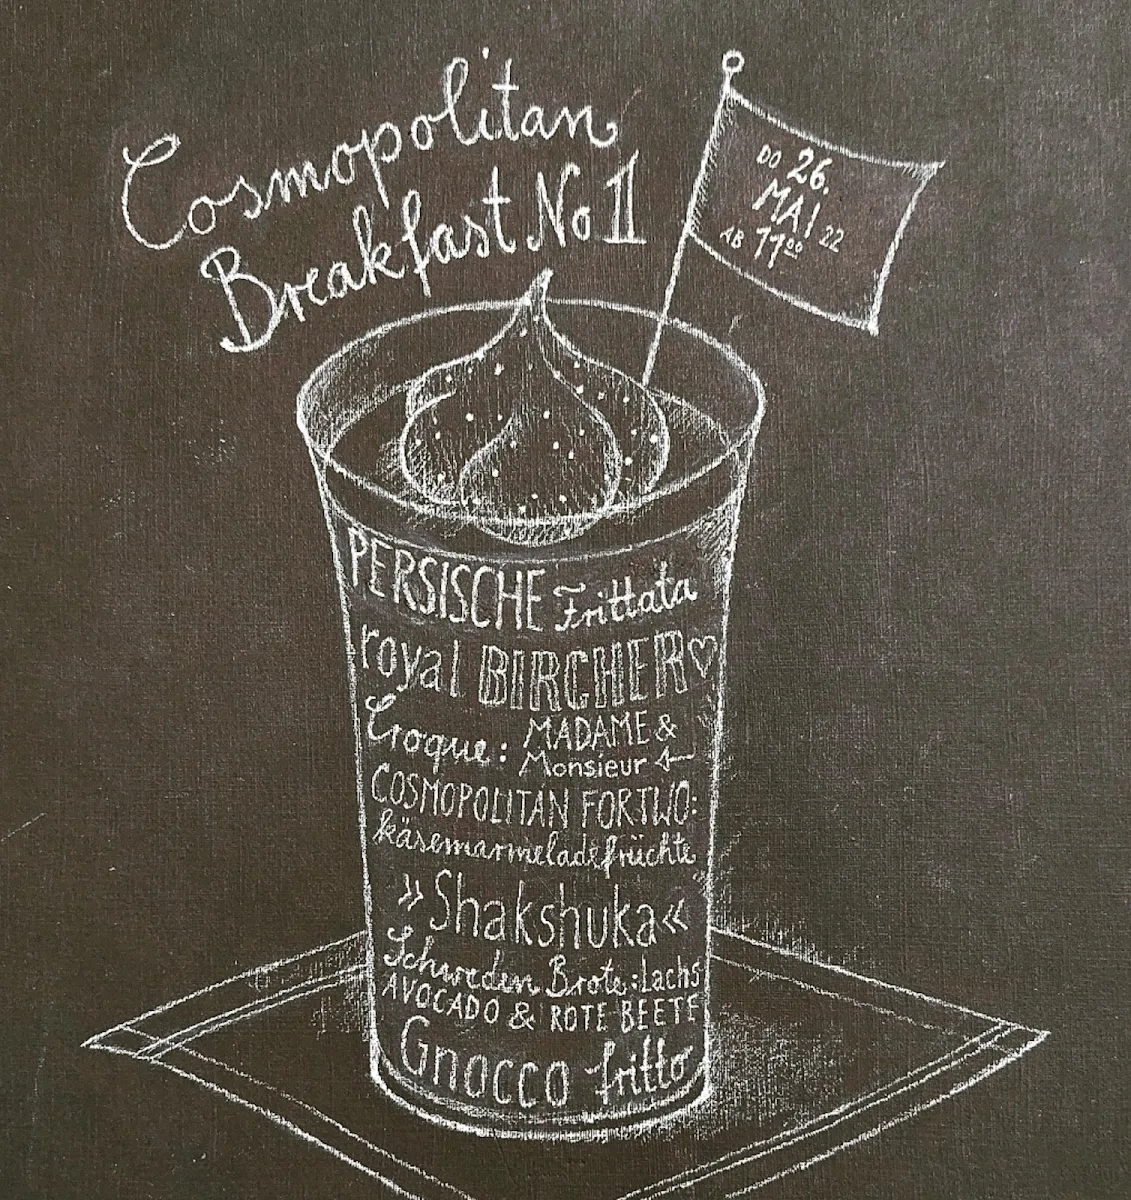 Cosmopolitan
Breakfast No 1
DO 26.
MAI 22
AB 11⁰⁰
PERSISCHE Frittata
royal BIRCHER♡
Croque: MADAME &
Monsieur
COSMOPOLITAN FOR TWO:
käsemarmeladefrüchte
»Shakshuka«
Schweden Brote: Lachs
AVOCADO & ROTE BEETE
Gnocco fritto